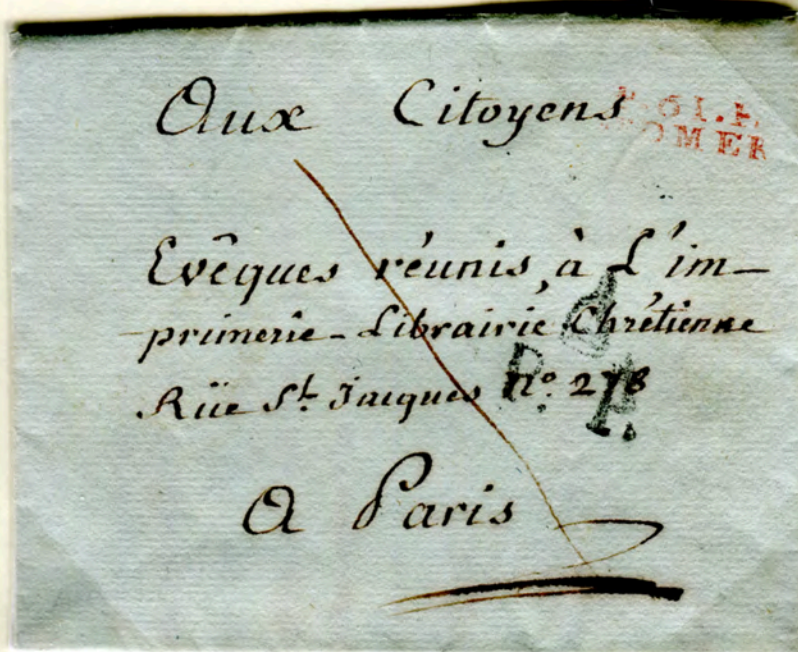 Aux Citoyens
Evêques réunis, à L'im-
primerie-Librairie Chrétienne
Rüe St. Jacques n° 278
A Paris
P. P.